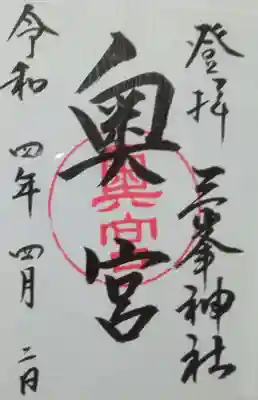 登拝
三峯神社
奥宮
奥宮
令和四年四月二日